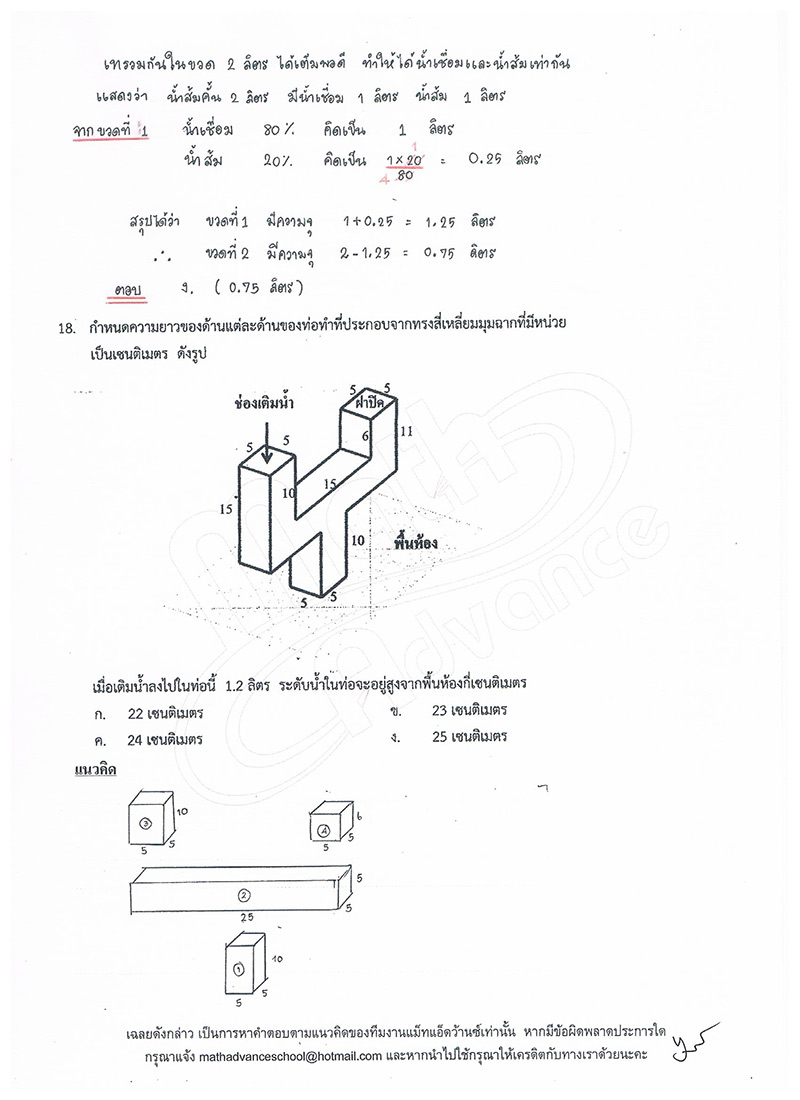 เทรวมกันในขวด 2 ลิตร ได้เต็มพอดี ทำให้ได้น้ำเชื่อมและน้ำส้มเท่ากัน
แสดงว่า น้ำส้มคั้น 2 ลิตร มีน้ำเชื่อม 1 ลิตร น้ำส้ม 1 ลิตร
จากขวดที่ 1 น้ำเชื่อม 80% คิดเป็น 1 ลิตร
น้ำส้ม 20% คิดเป็น 1×20/80 = 0.25 ลิตร
1
4
สรุปได้ว่า ขวดที่ 1 มีความจุ 1+0.25 = 1.25 ลิตร
∴ ขวดที่ 2 มีความจุ 2-1.25 = 0.75 ลิตร
ตอบ ง. (0.75 ลิตร)
18. กำหนดความยาวของด้านแต่ละด้านของท่อทำที่ประกอบจากทรงสี่เหลี่ยมมุมฉากที่มีหน่วย
เป็นเซนติเมตร ดังรูป
5 5
ช่องเติมน้ำ ฝาปิด
5 5 6 11
15 10 15
10 พื้นห้อง
5 5
Math Advance
เมื่อเติมน้ำลงไปในท่อนี้ 1.2 ลิตร ระดับน้ำในท่อจะอยู่สูงจากพื้นห้องกี่เซนติเมตร
ก. 22 เซนติเมตร ข. 23 เซนติเมตร
ค. 24 เซนติเมตร ง. 25 เซนติเมตร
แนวคิด
3 10 5 5
4 6 5 5
2 5 5 25
1 10 5 5
เฉลยดังกล่าว เป็นการหาคำตอบตามแนวคิดของทีมงานแม็ทแอ็ดว้านซ์เท่านั้น หากมีข้อผิดพลาดประการใด
กรุณาแจ้ง mathadvanceschool@hotmail.com และหากนำไปใช้กรุณาให้เครดิตกับทางเราด้วยนะคะ